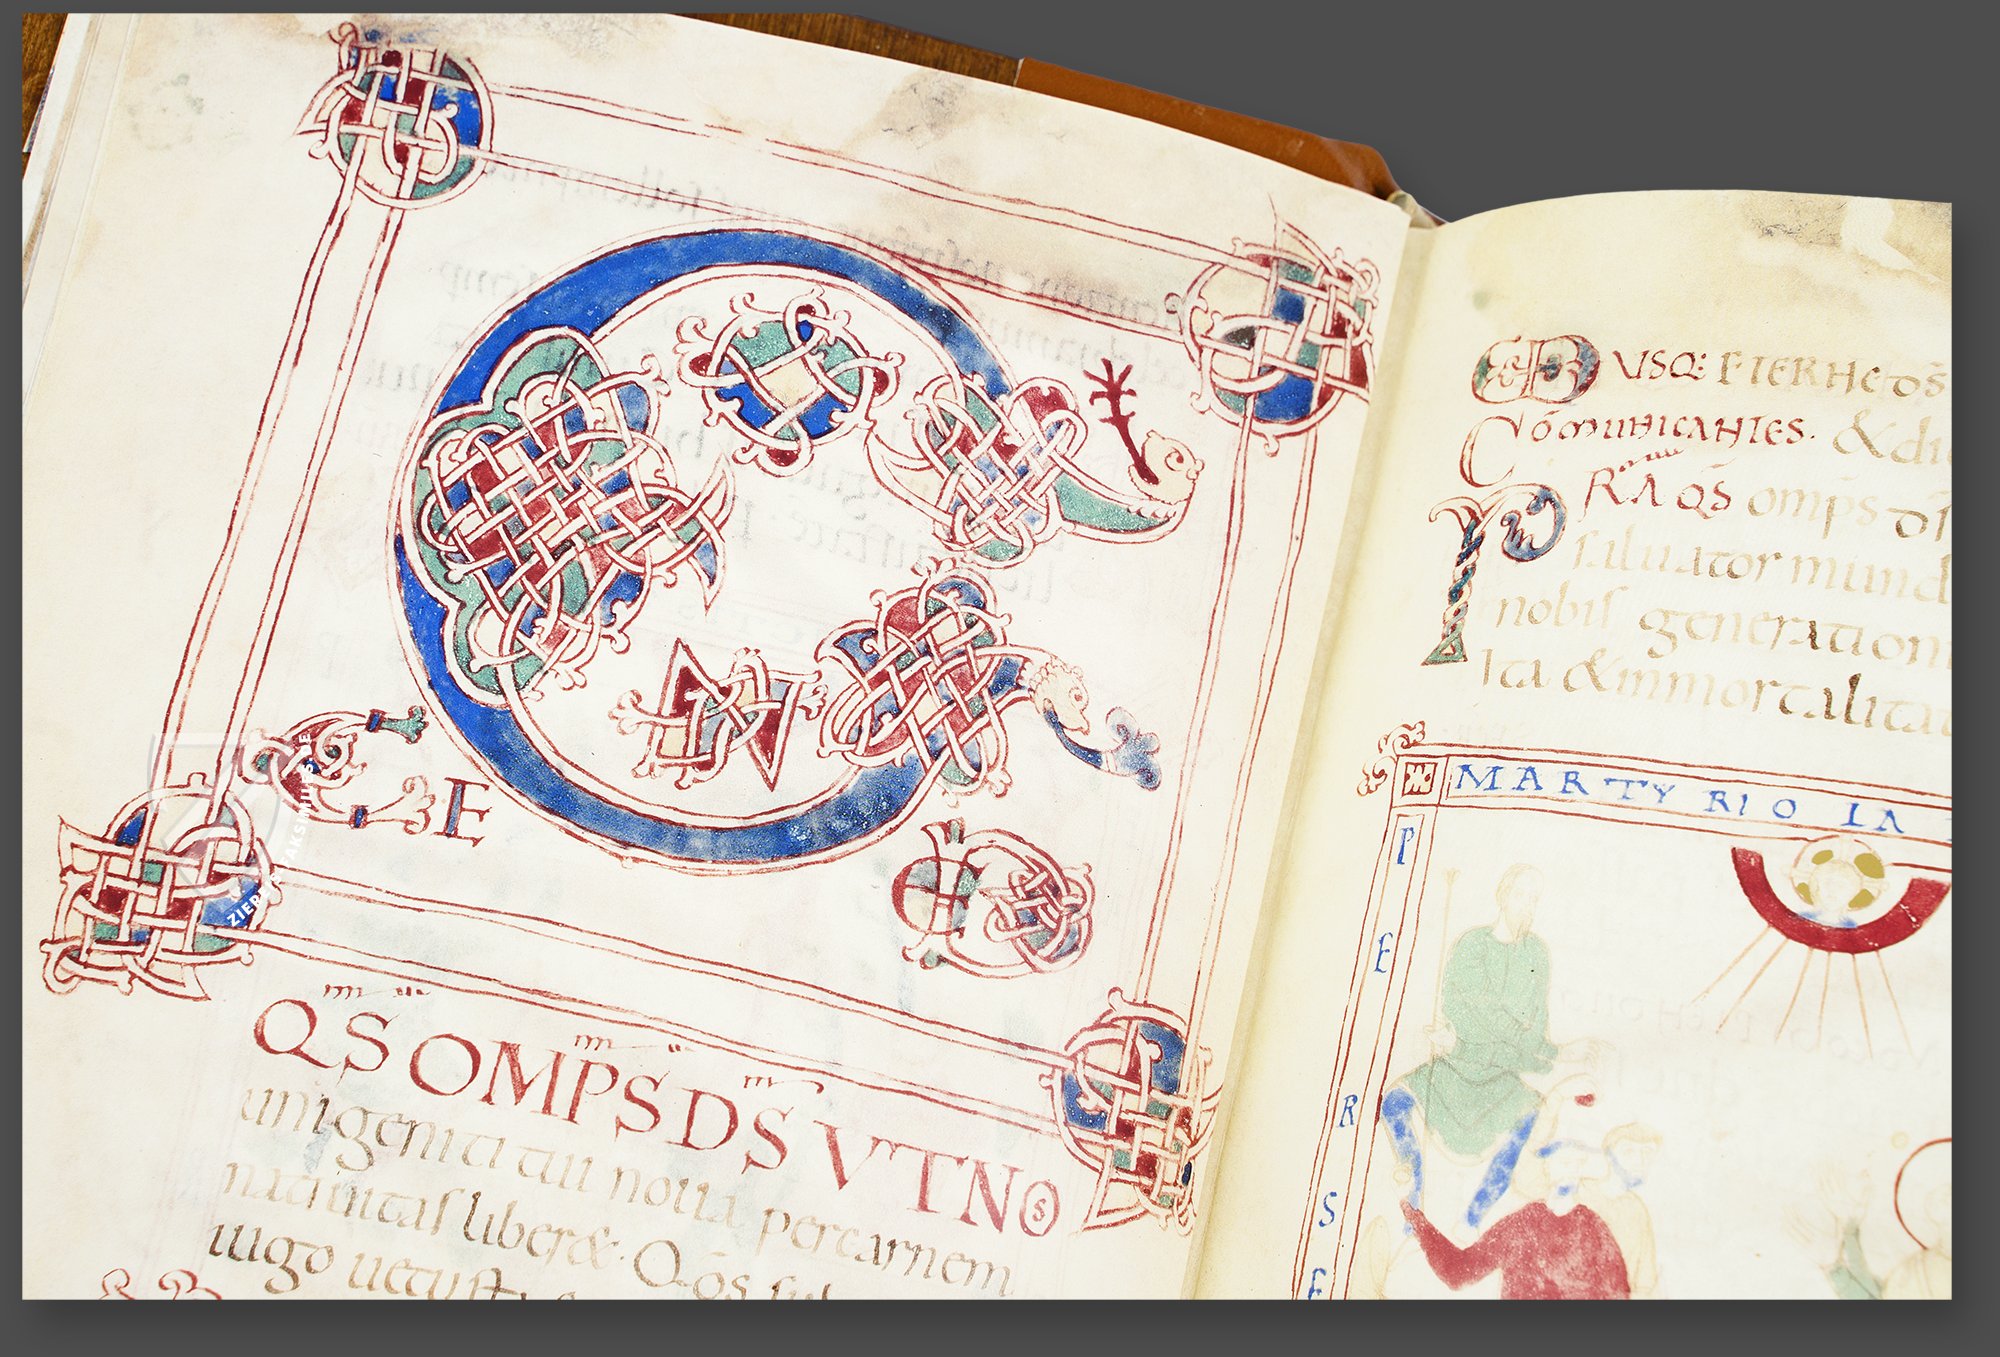 CON
CE DE
QS OMPS DS VT NOS
unigeniti tui noua percarnem
natiuitaſ liber& Qōs ſub
iugo uetuſt
VSQ: FIERHC DS
COMUNICANTES. & di
PRA QS omps dſ
ſaluator mund
nobiſ generation
Ita & inmortalitat
MARTYRIO IA
PERSE